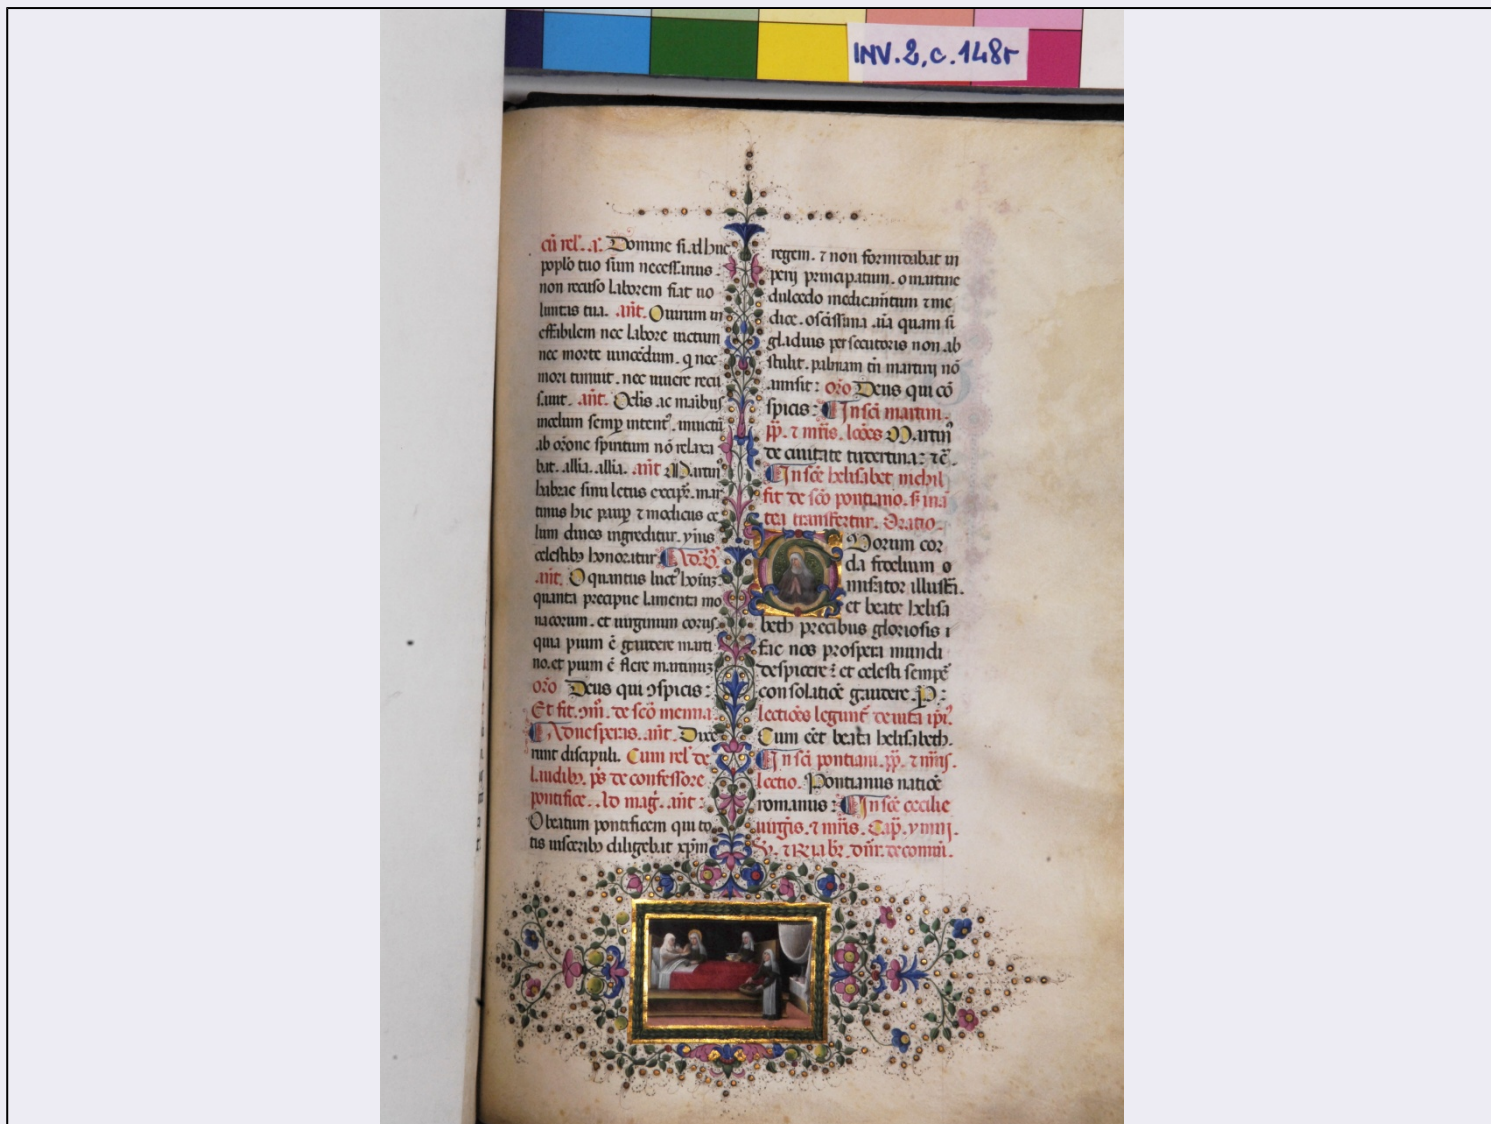 INV. 2, c. 148r
cũ rel'. a'. Domine si adhuc
poplo tuo sum necessarius.
non recuso laborem fiat uo
luntas tua. añt. O uirum in
effabilem nec labore uictum
nec morte uincẽdum. q nec
mori timuit. nec uiuere recu
sauit. añt. Oclis ac maibus
in celum semp intent'. inuictũ
ab orõne spiritum nõ relaxa
bat. allia. allia. añt Martin'
habrae sinu letus excipr̃. mar
tinus hic paup̱ ⁊ modicus ce
lum diues ingreditur. ymis
celestibꝫ honoratur
añt. O quantus luct' hoĩuꝫ
quanta precipue lamenta mo
nacorum. et uirginum corus.
quia pium ẽ gaudere marti
no. et pium ẽ flere martinuꝫ
oro Deus qui ɔspicis:
Et fit. ɔm̃. de scõ menna.
Ad uesperas. añt. Dixe
runt discipuli. Cum rel' de
laudibꝫ. ps de confessore
pontifice. Ad mag̃. añt:
O beatum pontificem qui to
tis uisceribꝫ diligebat xp̃m
regem. ⁊ non formidabat im
perij principatum. o martine
dulcedo medicam̃tum ⁊ me
dice. o scissima aĩa quam si
gladius persecutoris non ab
stulit. palmam tñ martirij nõ
amisit: oro Deus qui cõ
spicis: In sci martini.
pp̱. ⁊ mr̃is. lcões Martin'
de ciuitate tudertina: ⁊c̃.
In sce helisabet nichil
fit de scõ pontiano. s; in a
lia transfertur. Oratio.
Tuorum cor
da fidelium
miserator illustra.
et beate helisa
beth precibus gloriosis
fac nos prospera mundi
despicere: et celesti semp̱
consolatiõe gaudere. P:
lectiões legunt̃ de uita ip̃i'.
Cum eẽt beata helisabeth.
In sci pontiani. pp̱. ⁊ mr̃is.
lectio. Pontianus natiõe
romanus: In sce cecilie
uirgĩs. ⁊ mr̃is.